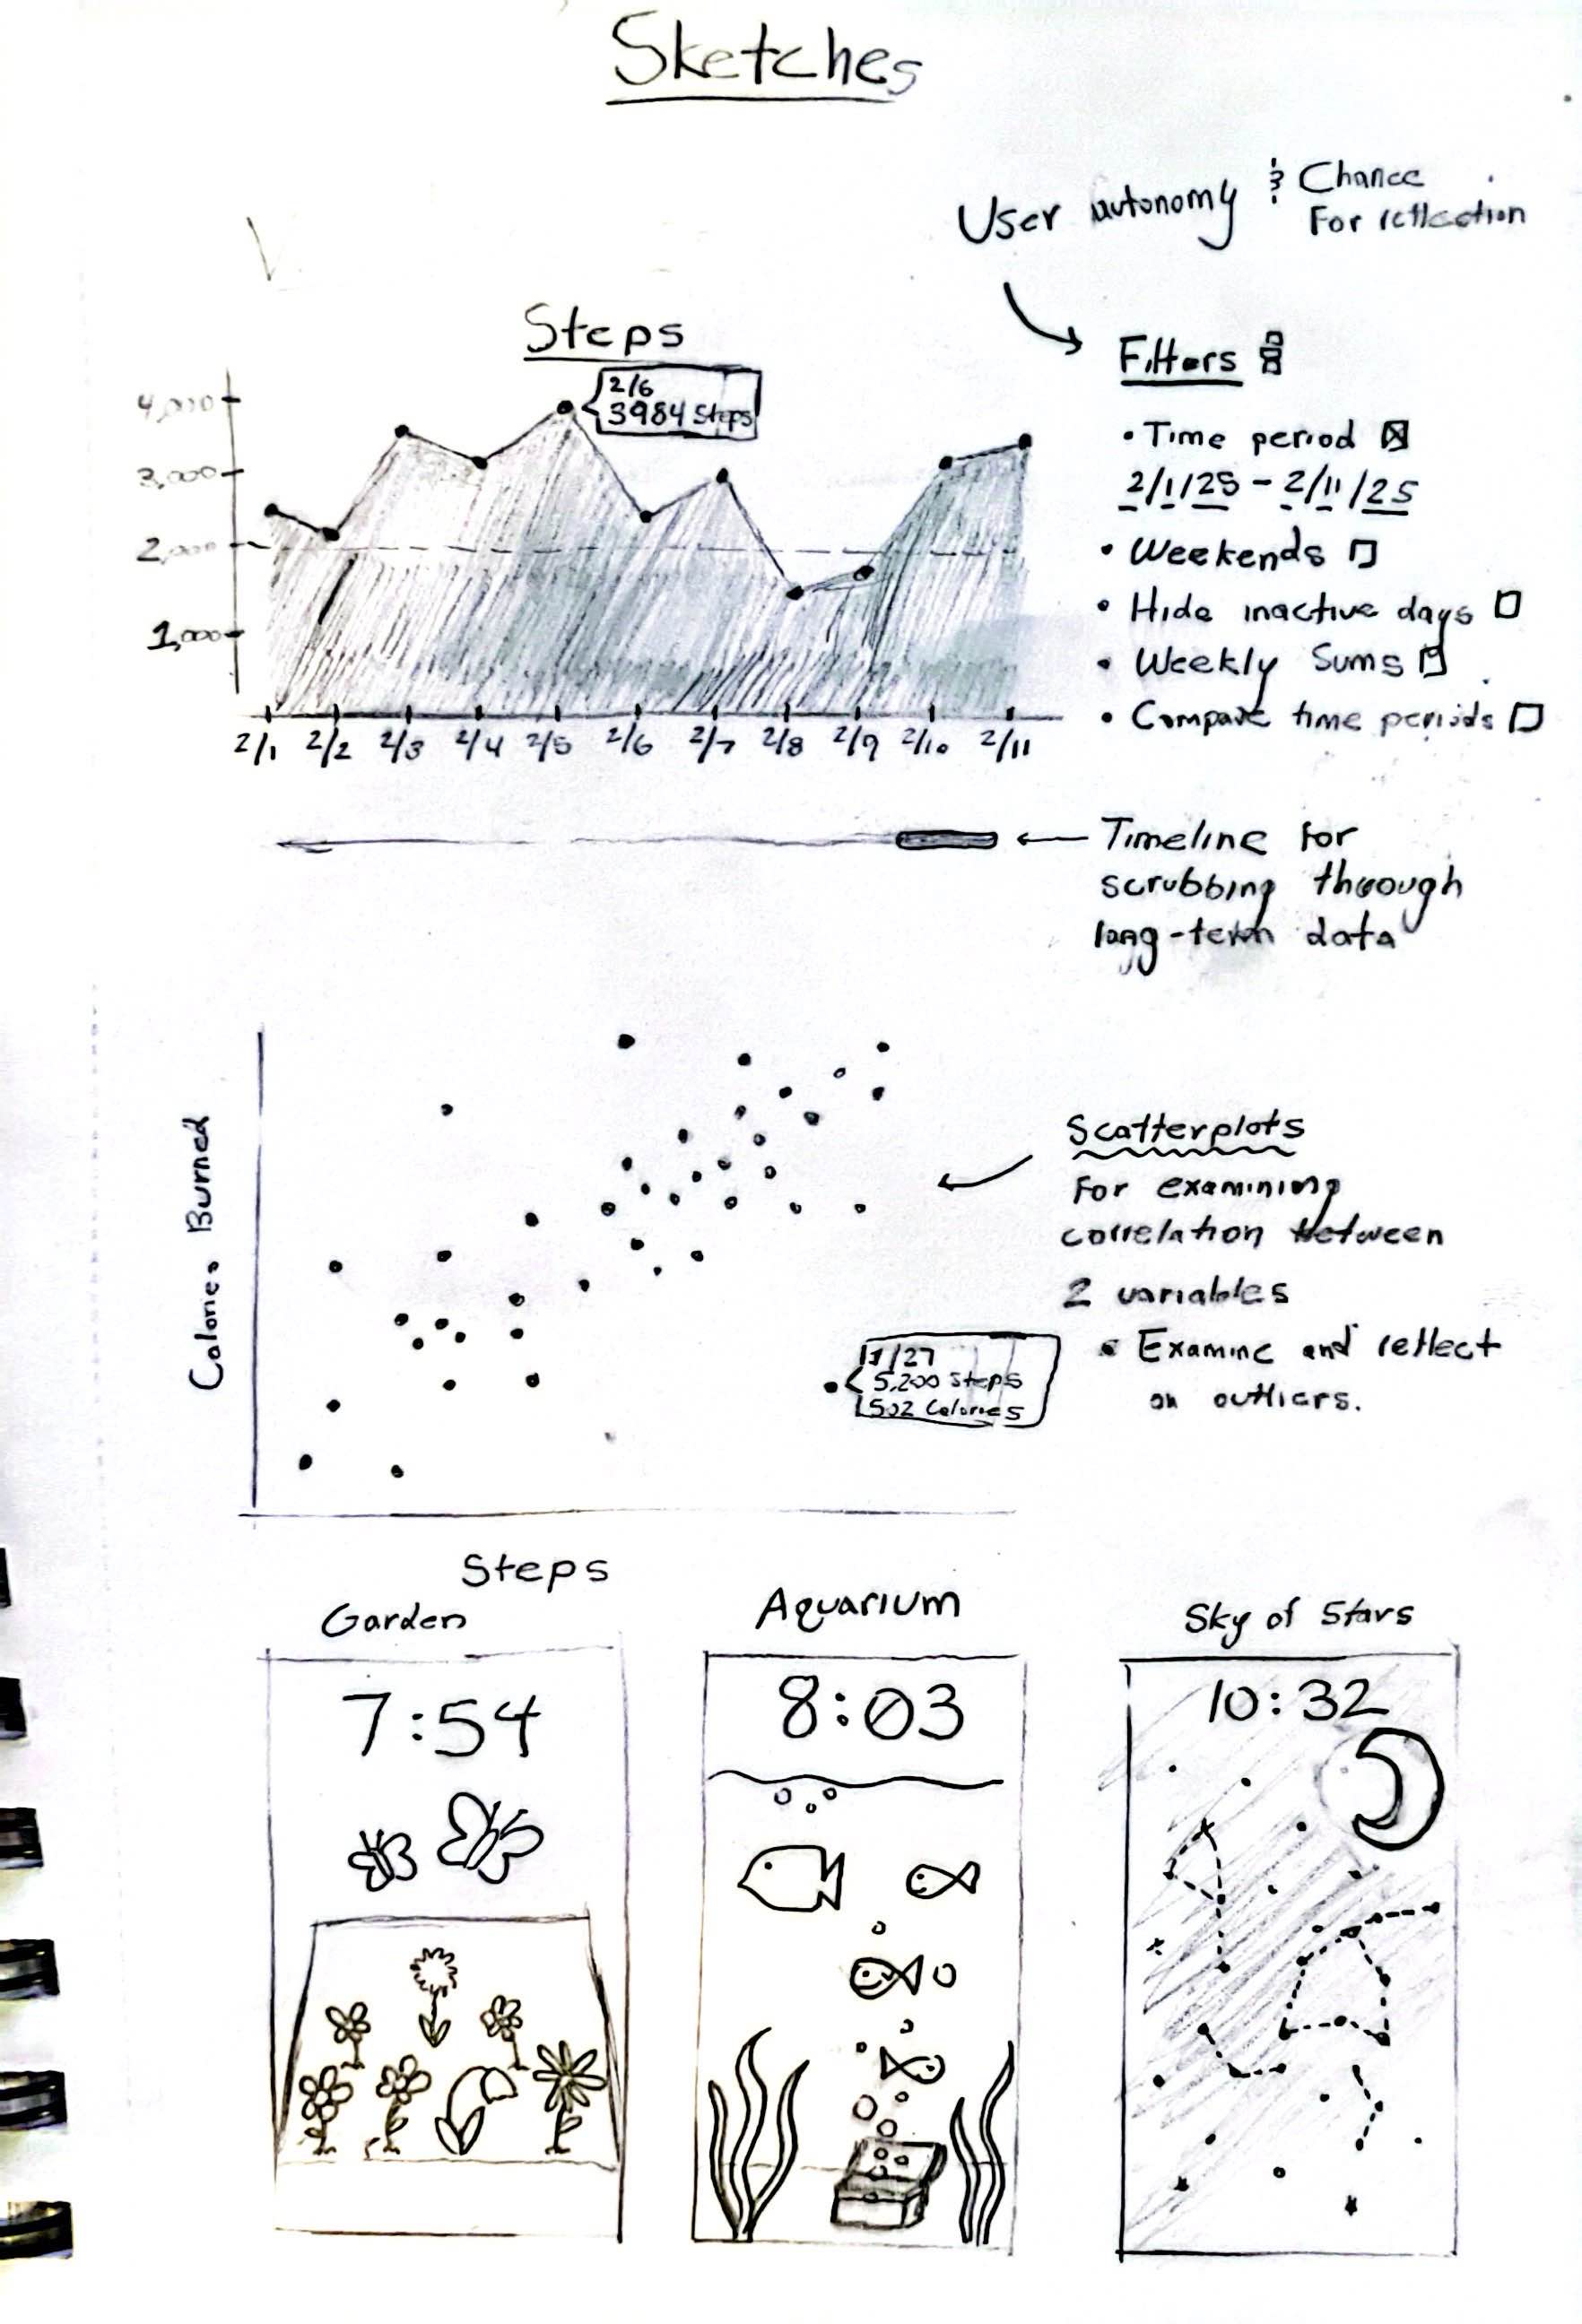 Sketches
User autonomy & Chance
For reflection
Steps
2/6
3984 Steps
4,000
3,000
2,000
1,000
2/1 2/2 2/3 2/4 2/5 2/6 2/7 2/8 2/9 2/10 2/11
Filters
• Time period
2/1/25 - 2/11/25
• Weekends
• Hide inactive days
• Weekly Sums
• Compare time periods
Timeline for
scrubbing through
long-term data
Calories Burned
Steps
11/27
5,200 Steps
502 Calories
Scatterplots
For examining
correlation between
2 variables
• Examine and reflect
on outliers.
Garden
7:54
Aquarium
8:03
Sky of Stars
10:32